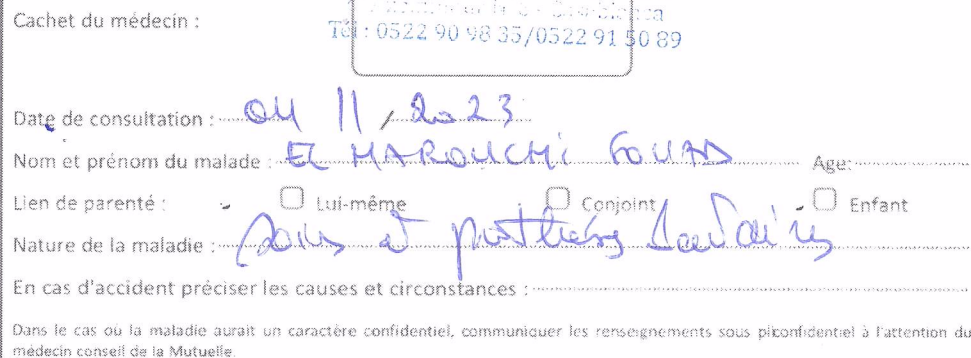 Cachet du médecin :
Casablanca
Tél : 0522 90 98 35/0522 91 50 89
Date de consultation : 04 11 / 2023
Nom et prénom du malade : EL MAROUCHI FOUAD Age:
Lien de parenté : Lui-même Conjoint Enfant
Nature de la maladie : Soins et prothèses dentaires
En cas d'accident préciser les causes et circonstances :
Dans le cas où la maladie aurait un caractère confidentiel, communiquer les renseignements sous pliconfidentiel à l'attention du
médecin conseil de la Mutuelle.